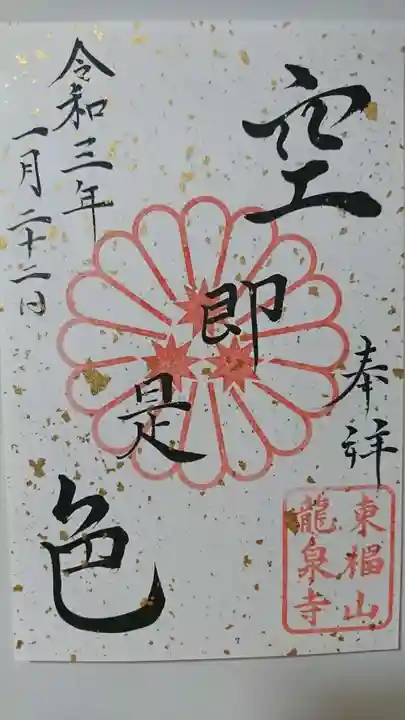 奉拝
空即是色
令和三年
一月二十二日
東榅山
龍泉寺